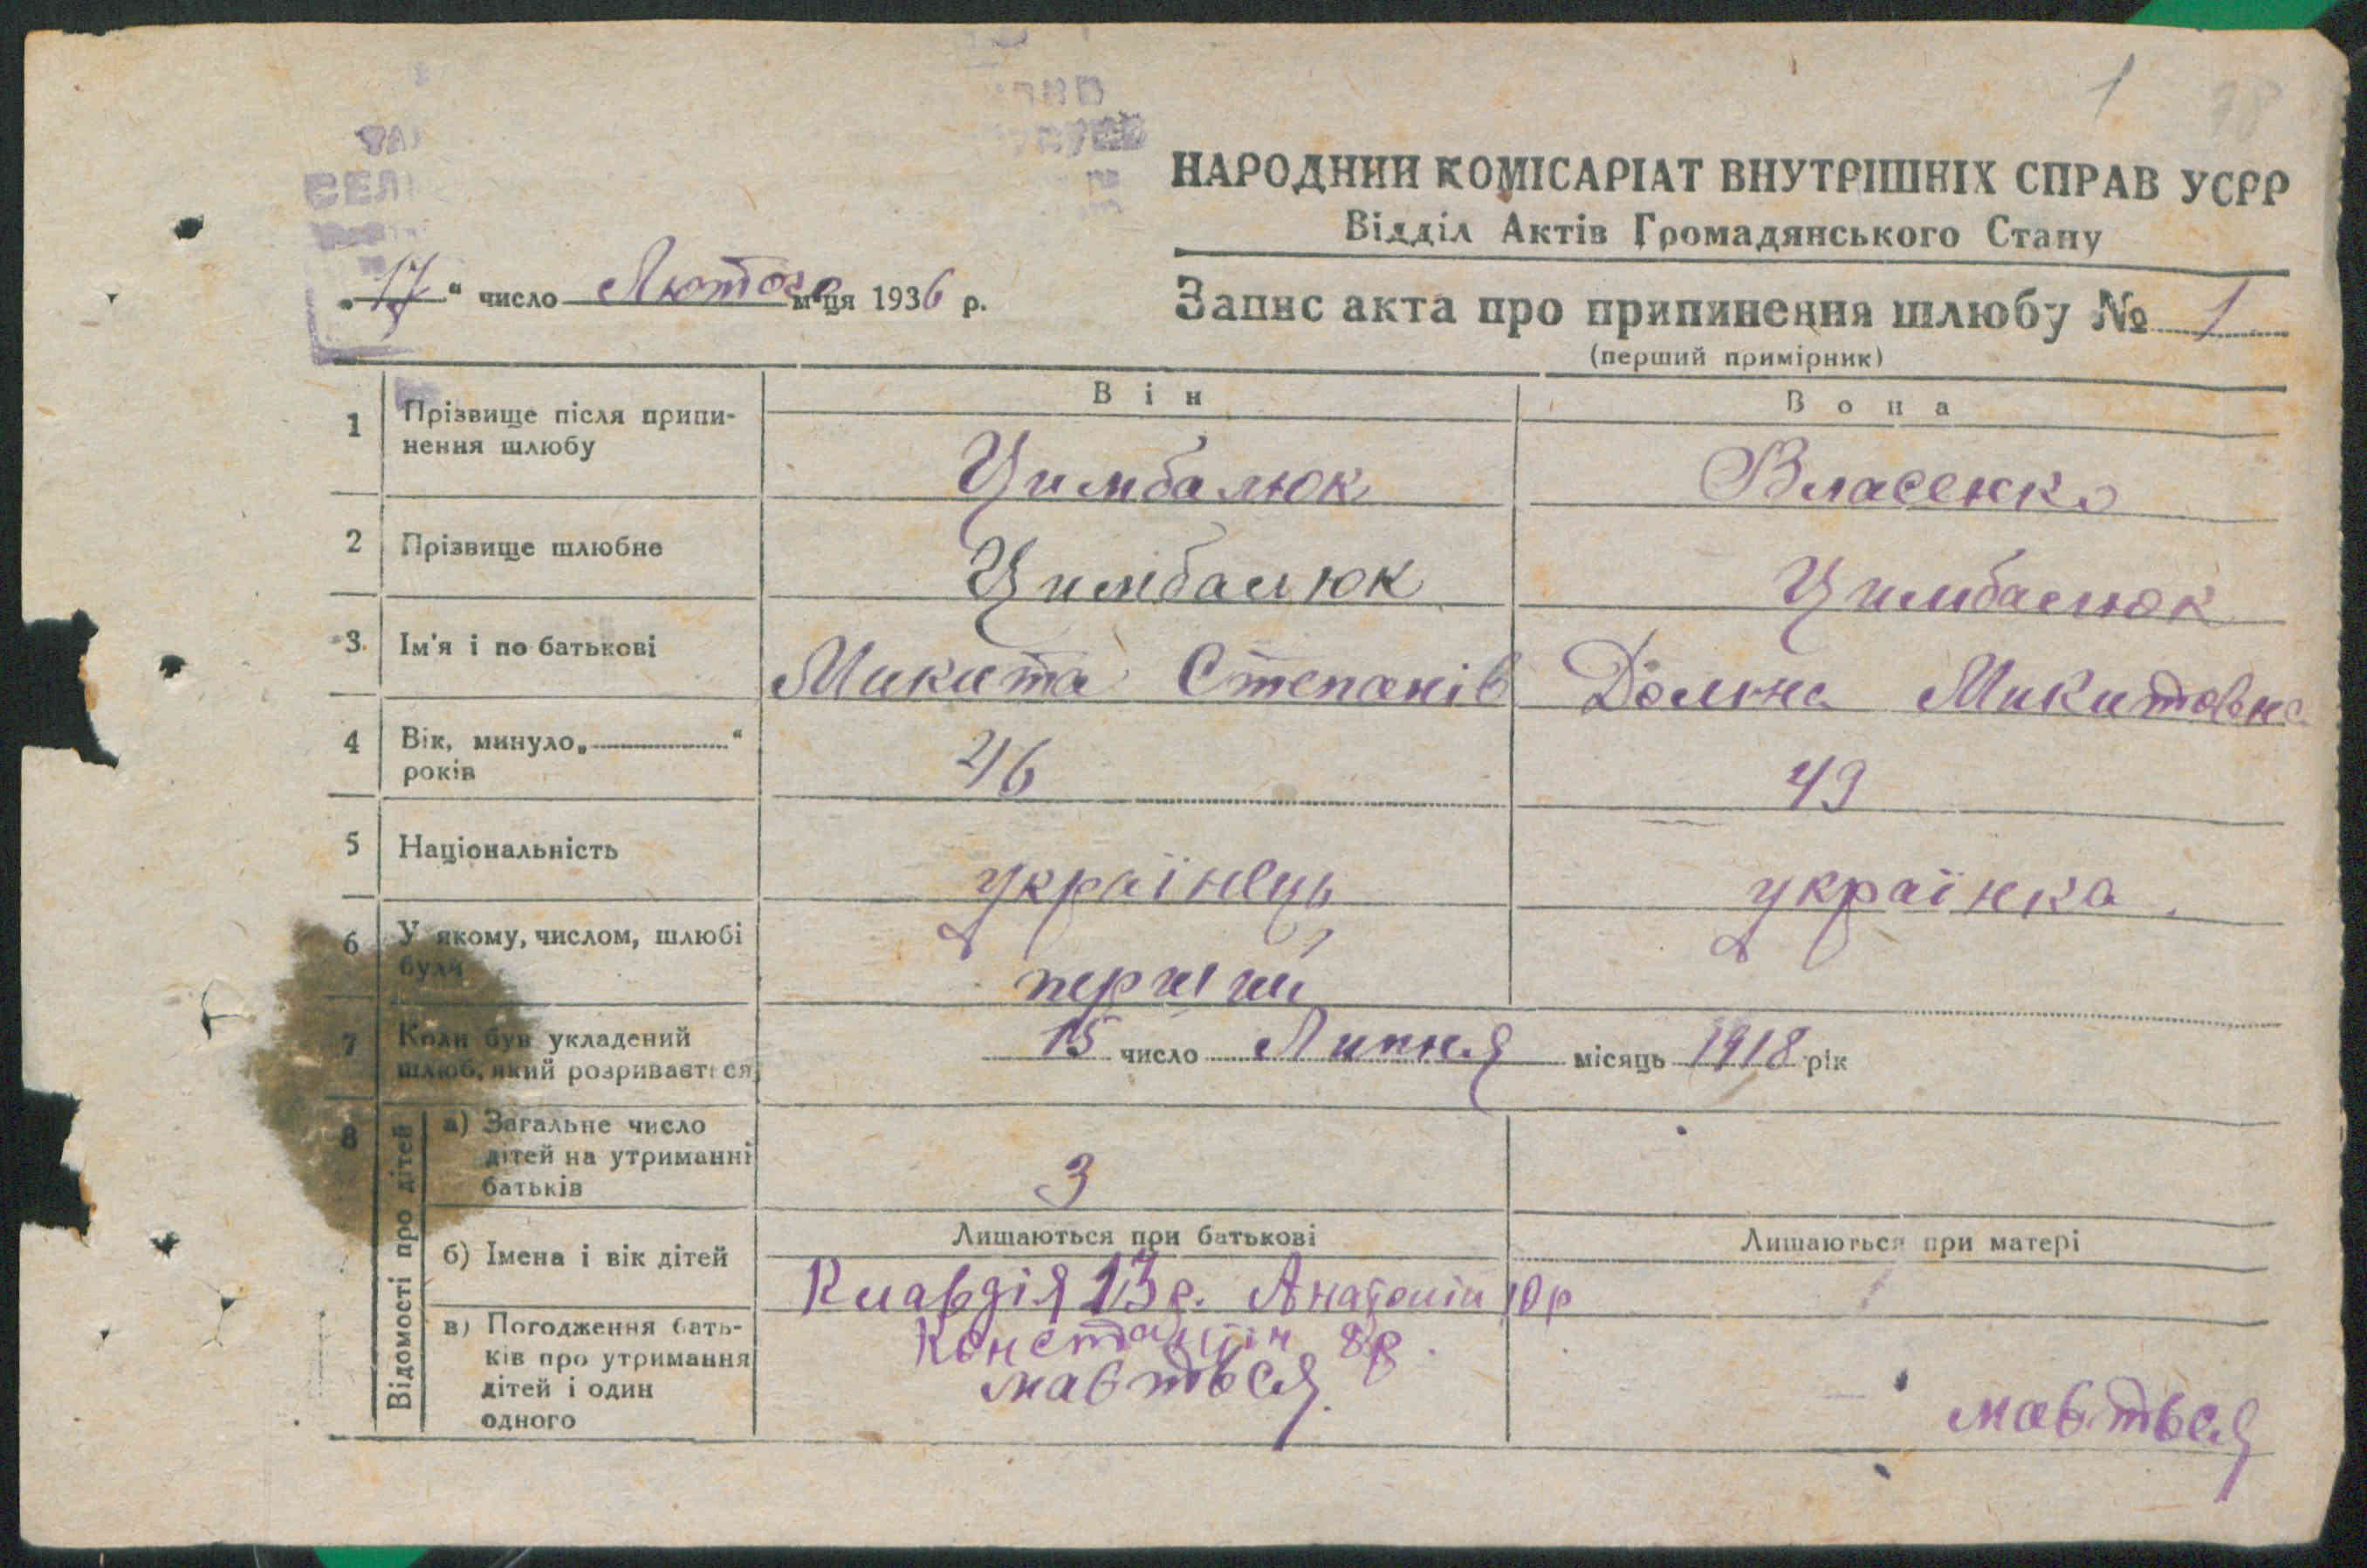 1
НАРОДНИЙ КОМІСАРІАТ ВНУТРІШНІХ СПРАВ УСРР
Відділ Актів Громадянського Стану
„17“ число Лютого м-ця 1936 р.
Запис акта про припинення шлюбу № 1
(перший примірник)
Він Вона
1 Прізвище після припи-
нення шлюбу
Цимбалюк Власенко
2 Прізвище шлюбне
Цимбалюк Цимбалюк
3. Ім'я і по батькові
Микита Степанів Микитовна
4 Вік, минуло „ “
років
46 49
5 Національність
українець українка
6 У якому, числом, шлюбі
були
перший
7 Коли був укладений
шлюб, який розривається
15 число Липня місяць 1918 рік
8 Відомості про дітей
а) Загальне число
дітей на утриманні
батьків
3
Лишаються при батькові Лишаються при матері
б) Імена і вік дітей
Клавдія 13 р. Анатолій 10 р
Константін 8 р.
в) Погодження бать-
ків про утримання
дітей і один
одного
мавться. мавться